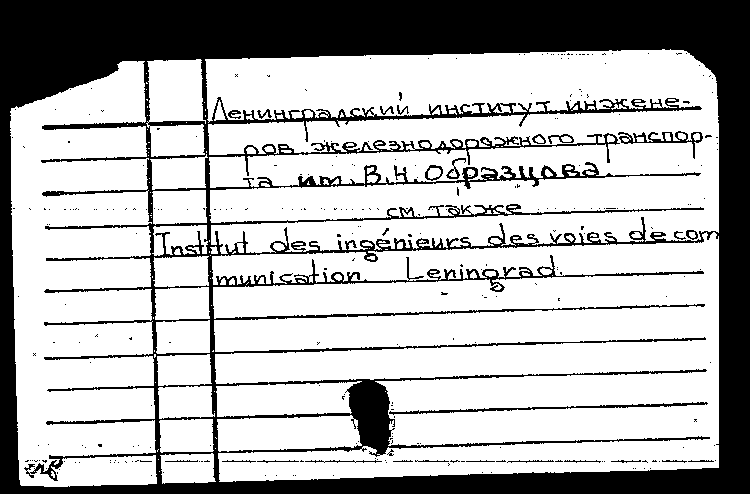 Ленинградский институт инжене-
ров железнодорожного транспор-
та им. В.Н. Образцова.
см. также
Institut des ingénieurs des voies de com
munication. Leningrad.